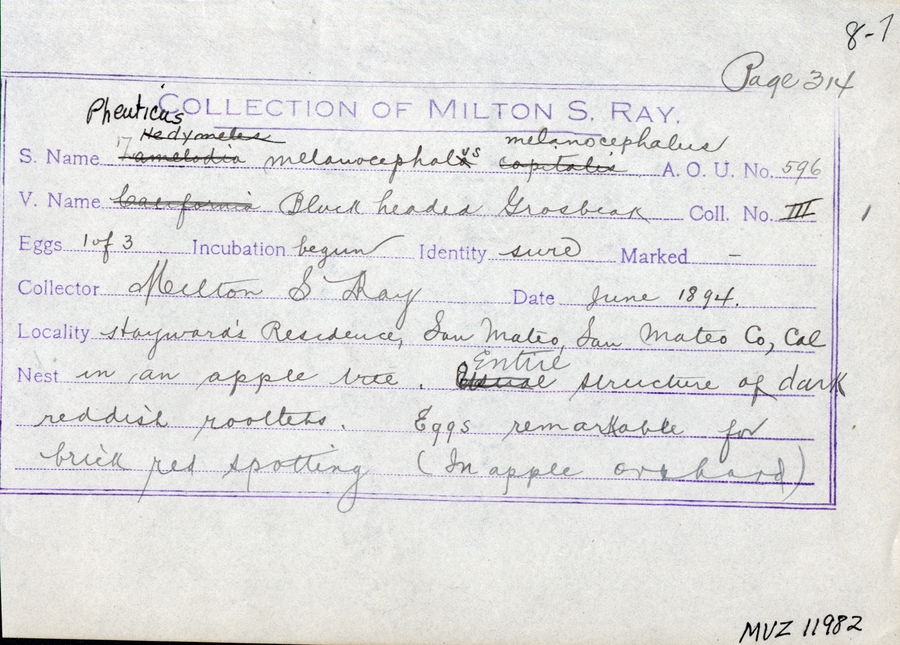 8-7
Page 314
COLLECTION OF MILTON S. RAY.
Pheuticus
Hedymeles melanocephalus
S. Name Zamelodia melanocephalus capitalis A. O. U. No. 596
V. Name California Black headed Grosbeak Coll. No. III
Eggs 1 of 3 Incubation begun Identity sure Marked –
Collector Milton S Ray Date June 1894.
Locality Hayward's Residence, San Mateo, San Mateo Co, Cal
Entire
Nest in an apple tree. Usual structure of dark
reddish rootlets. Eggs remarkable for
brick red spotting (In apple orchard)
MVZ 11982